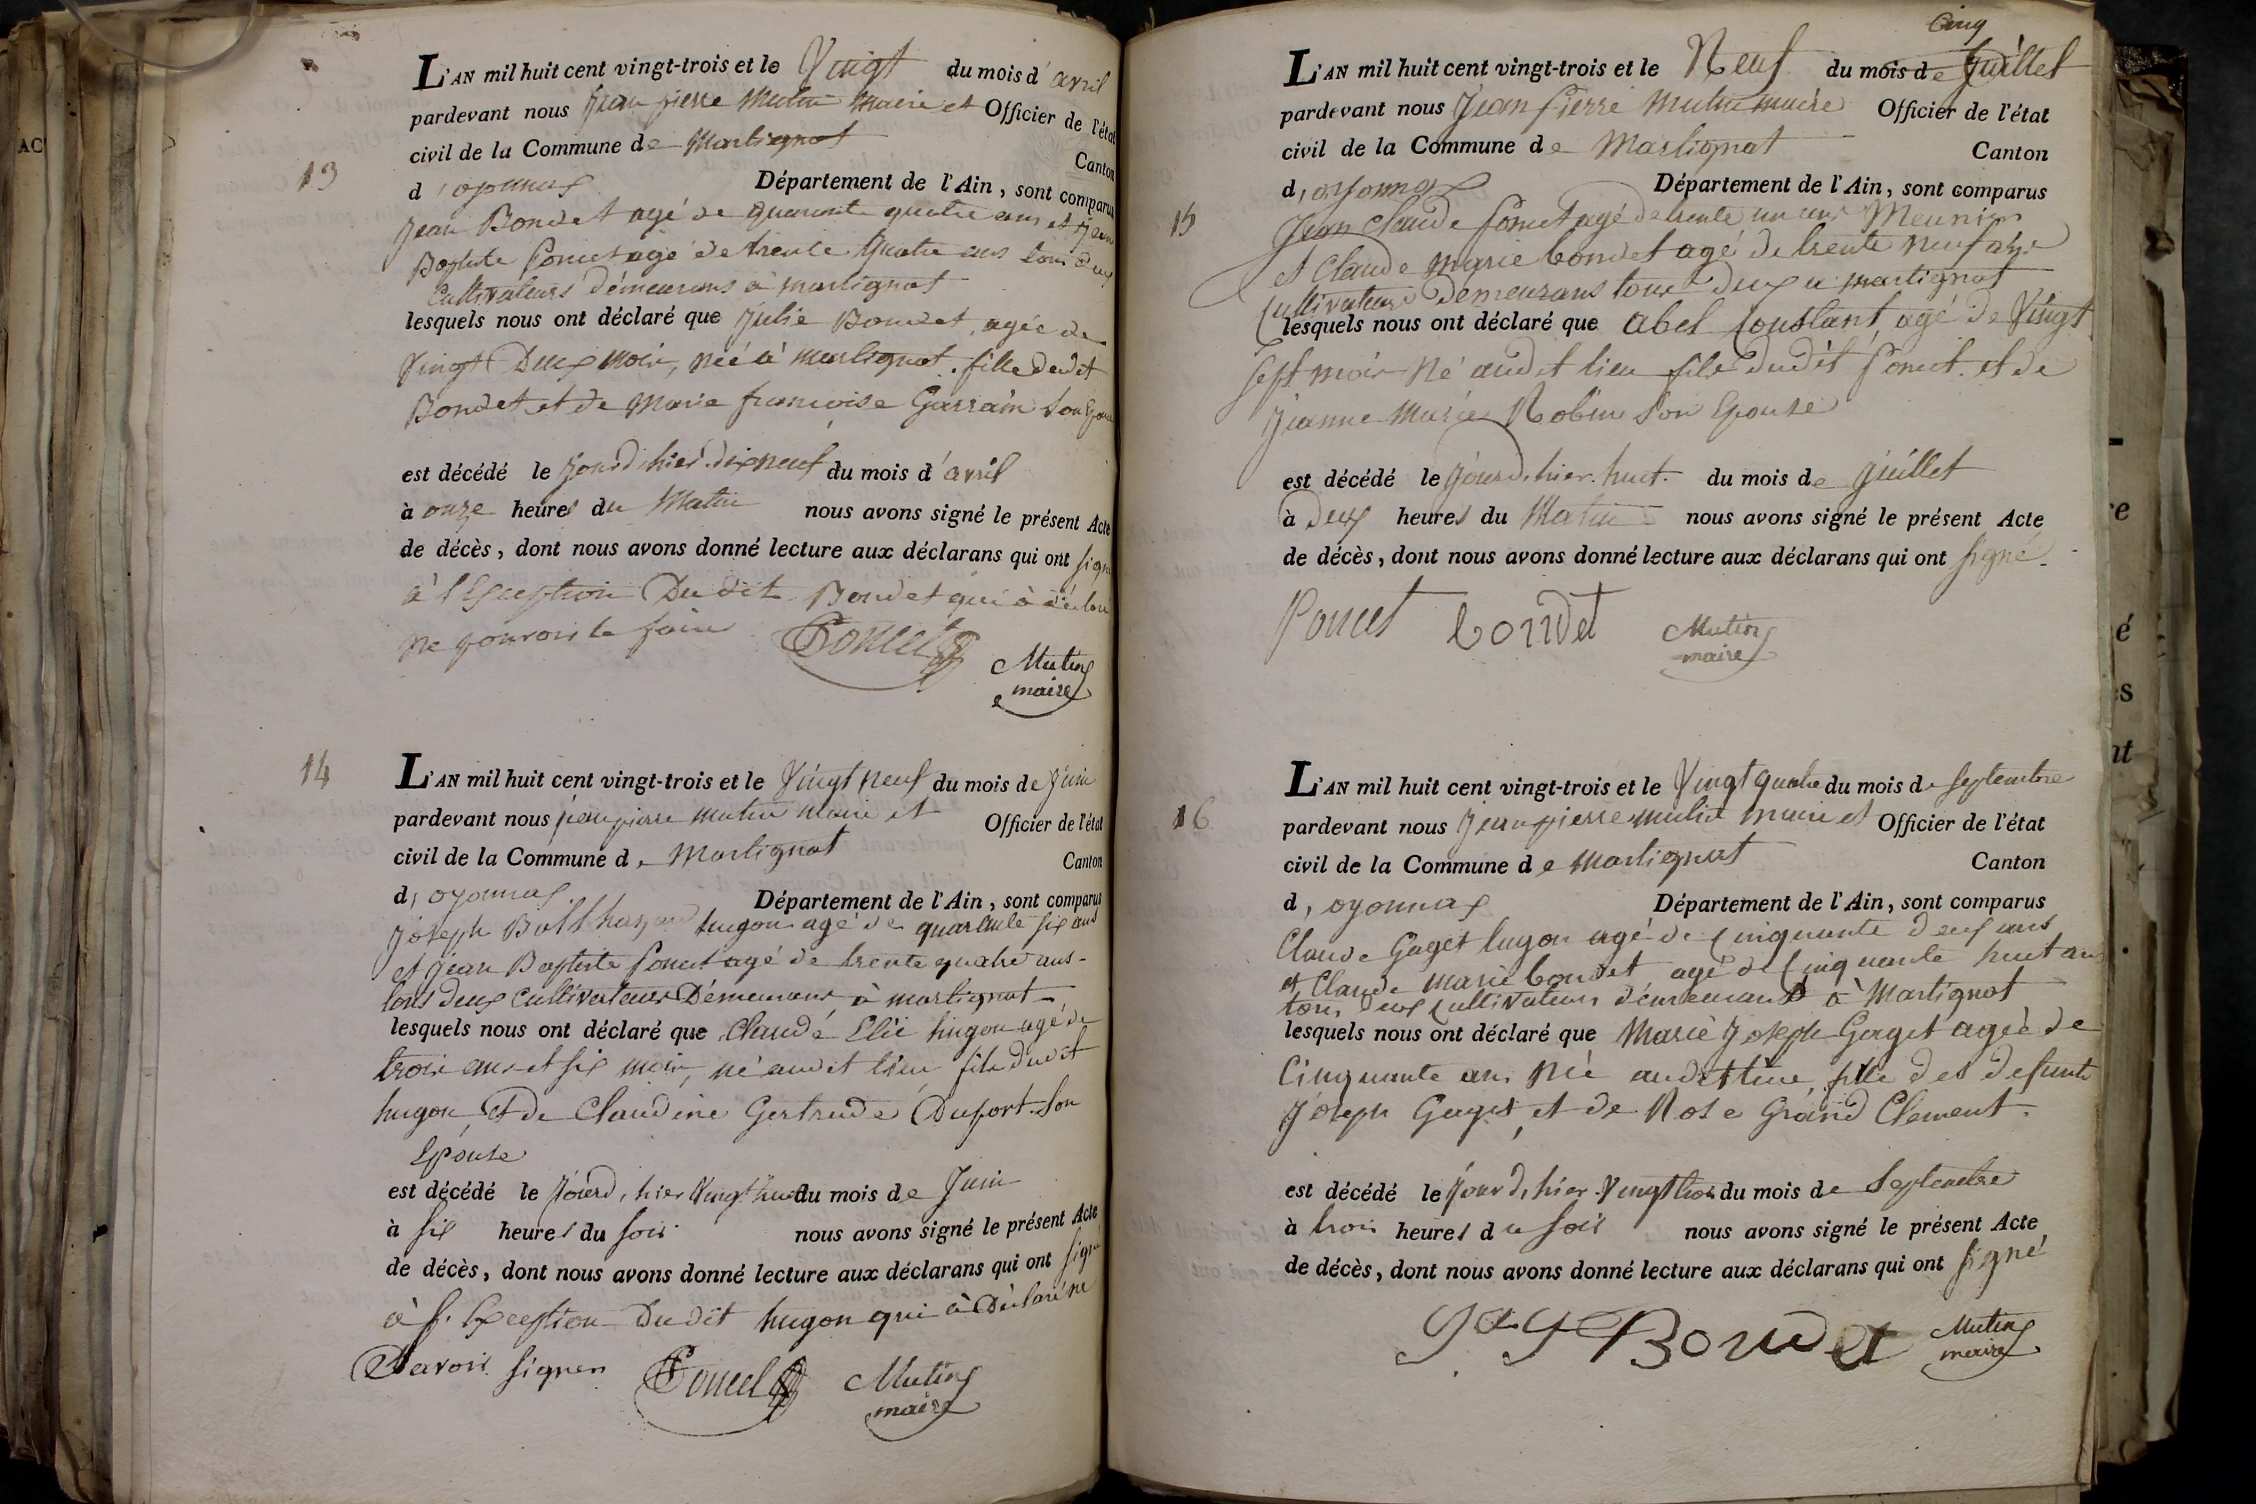 AC
13
L'AN mil huit cent vingt-trois et le Vingt du mois d'avril
pardevant nous Jean pierre Mutin maire et Officier de l'état
civil de la Commune de Martignat
Canton
d'oyonnax Département de l'Ain, sont comparus
Jean Bondet agé de quarante quatre ans et Jean
Baptiste Poncet agé de trente quatre ans tous deux
Cultivateurs démeurans à martignat
lesquels nous ont déclaré que Julie Bondet, agée de
Vingt Deux mois, née à martignat, fille dudit
Bondet et de Marie françoise Garrain son Epouse
est décédé le jourd'hier dix neuf du mois d'avril
à onze heures du Matin nous avons signé le présent Acte
de décès, dont nous avons donné lecture aux déclarans qui ont signé
à l'Exception Dudit Bondet qui à déclaré
ne pouvoir le faire
Poncet
Mutin
maire
14
L'AN mil huit cent vingt-trois et le Vingt neuf du mois de Juin
pardevant nous jean pierre mutin maire et Officier de l'état
civil de la Commune de Martignat
Canton
d'oyonnax Département de l'Ain, sont comparus
Joseph Balthazard hugon agé de quarante six ans
et Jean Baptiste Poncet agé de trente quatre ans
tous deux Cultivateurs Démeurans à martignat
lesquels nous ont déclaré que Claude Elie hugon agé de
trois ans et six mois, né audit lieu fils dudit
hugon, et de Claudine Gertrude Duport son
Epouse
est décédé le Jourd'hier Vingt huit du mois de Juin
à six heures du soir nous avons signé le présent Acte
de décès, dont nous avons donné lecture aux déclarans qui ont signé
à l'Exception Dudit hugon qui à Déclaré ne
Savoir signer
Poncet
Mutin
maire
Cinq
15
L'AN mil huit cent vingt-trois et le Neuf du mois de Juillet
pardevant nous Jean Pierre Mutin maire Officier de l'état
civil de la Commune de Martignat
Canton
d'oyonnax Département de l'Ain, sont comparus
Jean Claude Poncet agé de trente un ans Meunier
et Claude Marie bondet agé de trente neuf ans
Cultivateurs Démeurans tous deux à martignat
lesquels nous ont déclaré que Abel Constant, agé de Vingt
sept mois Né audit lieu fils dudit Poncet et de
Jeanne Marie Robin son Epouse
est décédé le Jourd'hier huit du mois de Juillet
à Deux heures du Matin nous avons signé le présent Acte
de décès, dont nous avons donné lecture aux déclarans qui ont signé
Poncet bondet
Mutin
maire
16
L'AN mil huit cent vingt-trois et le Vingt quatre du mois de Septembre
pardevant nous Jean pierre mutin maire et Officier de l'état
civil de la Commune de Martignat
Canton
d'oyonnax Département de l'Ain, sont comparus
Claude Gaget lugon agé de Cinquante deux ans
et Claude marie bondet agé de Cinquante huit ans
tous deux Cultivateurs démeurans à Martignat
lesquels nous ont déclaré que Marie Joseph Gaget agée de
Cinquante ans Née audit lieu, fille des defunts
Joseph Gaget, et de Rose Grand Clement.
est décédé le Jourd'hier Vingt trois du mois de Septembre
à trois heures du Soir nous avons signé le présent Acte
de décès, dont nous avons donné lecture aux déclarans qui ont signé
Bondet
Mutin
maire